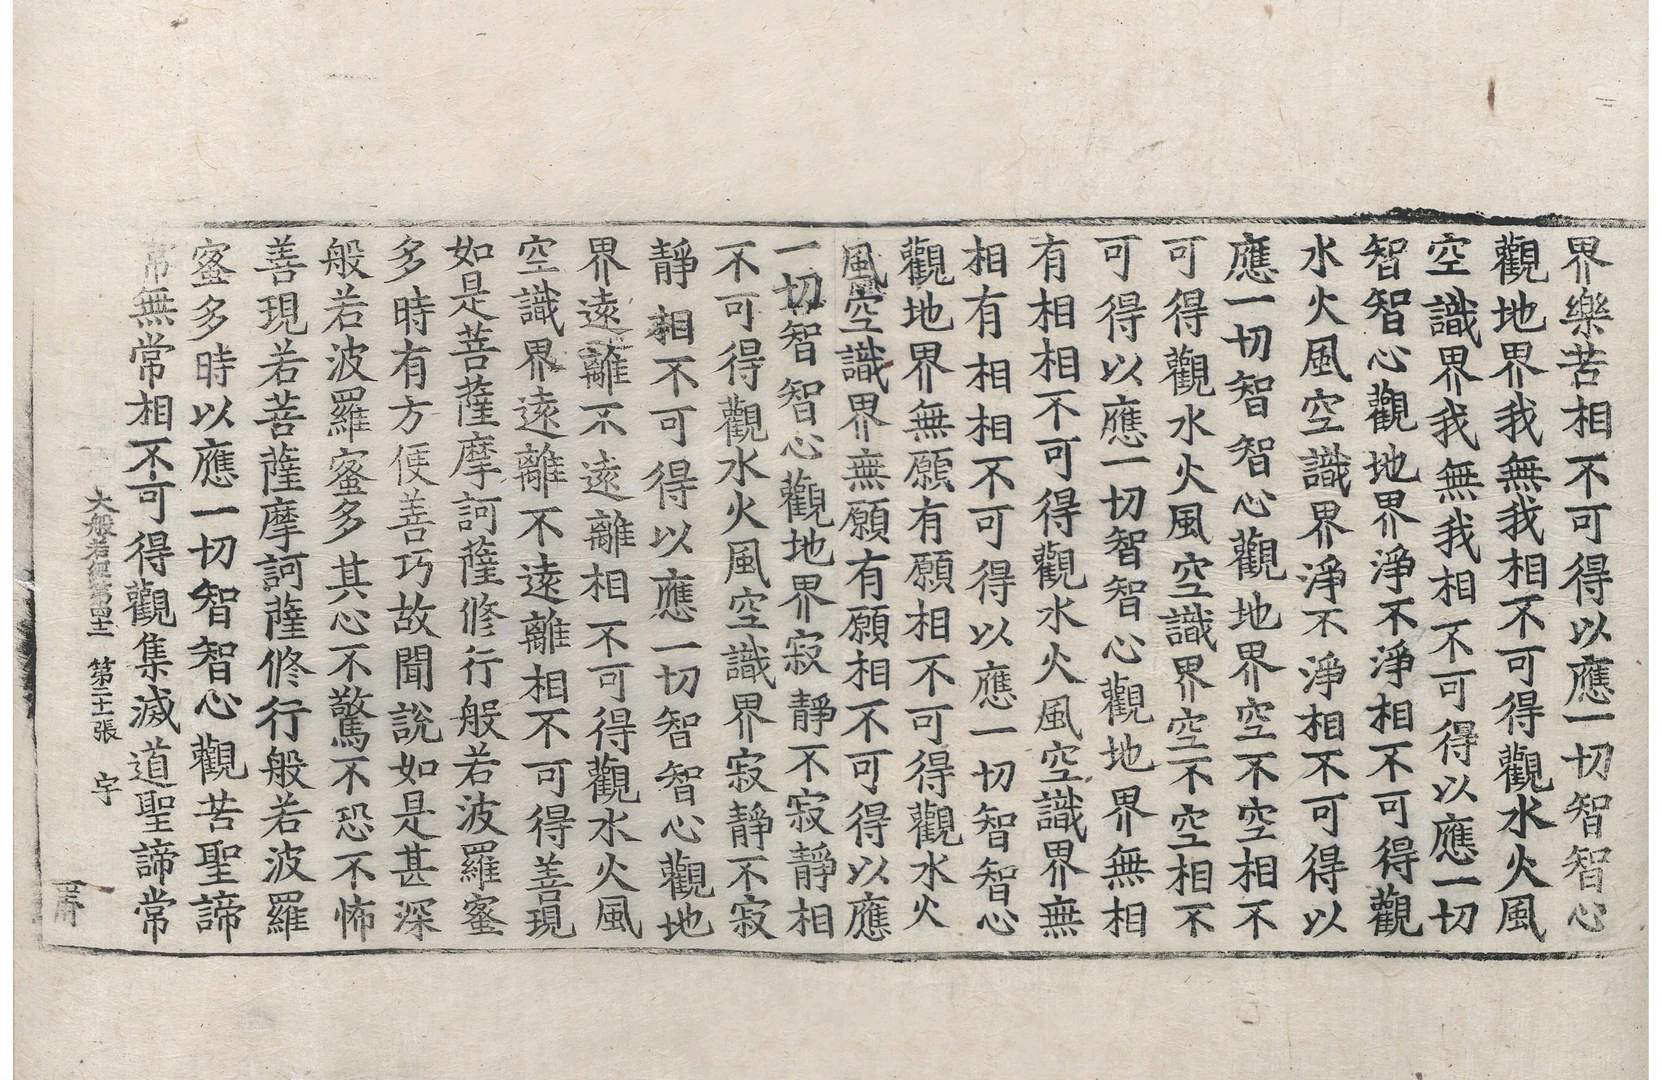 界樂苦相不可得以應一切智智心
觀地界我無我相不可得觀水火風
空識界我無我相不可得以應一切
智智心觀地界淨不淨相不可得觀
水火風空識界淨不淨相不可得以
應一切智智心觀地界空不空相不
可得觀水火風空識界空不空相不
可得以應一切智智心觀地界無相
有相相不可得觀水火風空識界無
相有相相不可得以應一切智智心
觀地界無願有願相不可得觀水火
風空識界無願有願相不可得以應
一切智智心觀地界寂靜不寂靜相
不可得觀水火風空識界寂靜不寂
靜相不可得以應一切智智心觀地
界遠離不遠離相不可得觀水火風
空識界遠離不遠離相不可得善現
如是菩薩摩訶薩修行般若波羅蜜
多時有方便善巧故聞說如是甚深
般若波羅蜜多其心不驚不恐不怖
善現若菩薩摩訶薩修行般若波羅
蜜多時以應一切智智心觀苦聖諦
常無常相不可得觀集滅道聖諦常
大般若經第四十二 第二十一張 宇